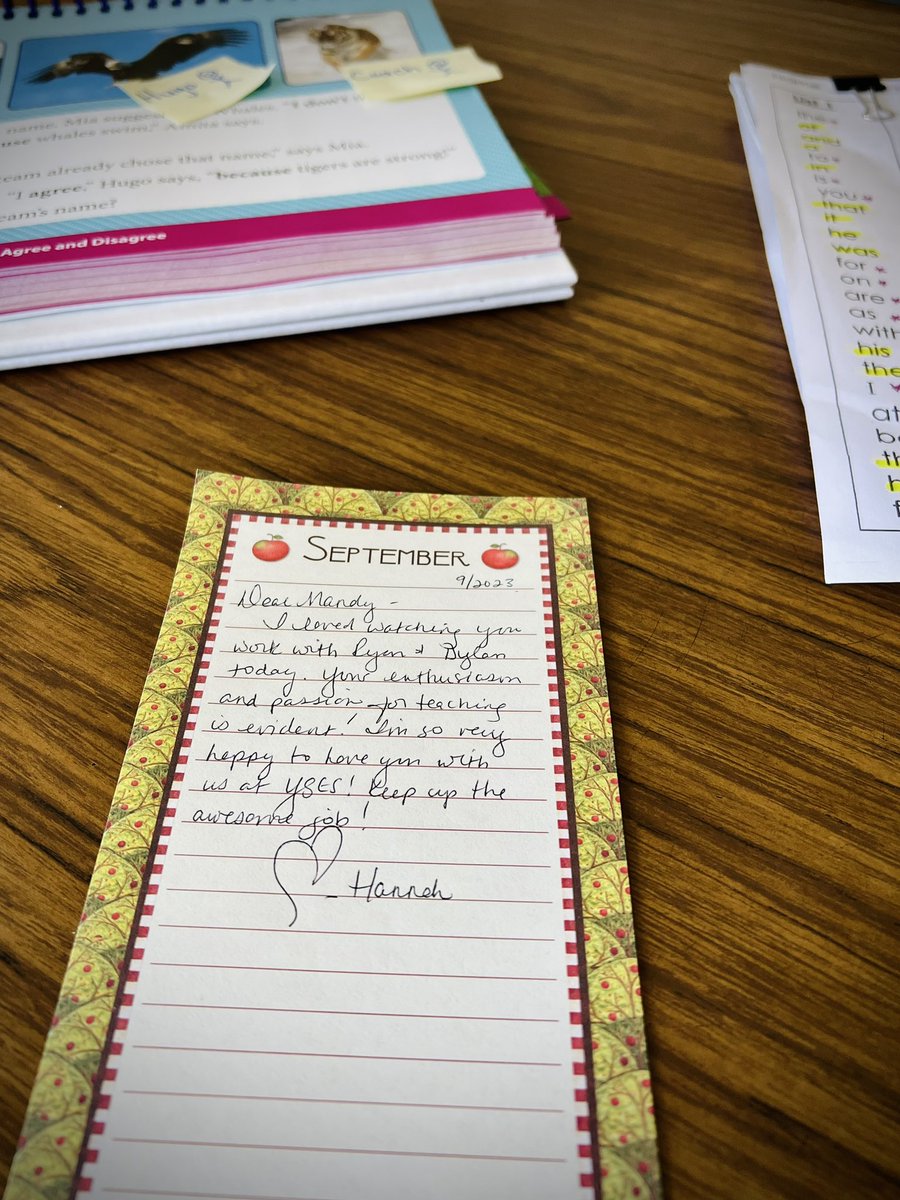 Hugo
Coach
name. Mia
use whales swim," Anita says.
eam already chose that name," says Mia.
"I agree," Hugo says, "because tigers are strong!"
eam's name?
Agree and Disagree
the
of
and
a
to
in
is
you
that
it
he
was
for
on
are
as
with
his
the
I
at
be
th
h
SEPTEMBER
9/2023
Dear Mandy -
I loved watching you
work with Ryan + Dylan
today. Your enthusiasm
and passion for teaching
is evident! I'm so very
happy to have you with
us at YSES! Keep up the
awesome job!
- Hannah